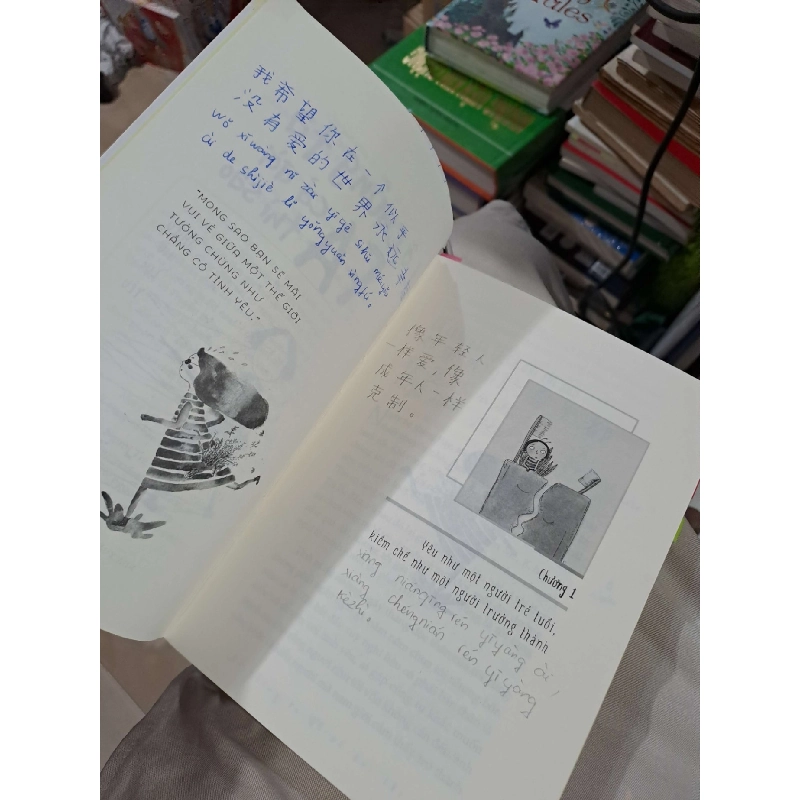 我希望你在一个似乎
没有爱的世界永远幸
wǒ xīwàng nǐ zài yīgè sìhū méiyǒu
ài de shìjiè lǐ yǒngyuǎn xìngfú.
"MONG SAO BẠN SẼ MÃI
VUI VẺ GIỮA MỘT THẾ GIỚI
TƯỞNG CHỪNG NHƯ
CHẲNG CÓ TÌNH YÊU."
像年轻人
一样爱，像
成年人一样
克制。
Chương 1
Yêu như một người trẻ tuổi,
kiềm chế như một người trưởng thành
xiàng niánqīng rén yīyàng ài,
xiàng chéngnián rén yīyàng
kèzhì.
Tales